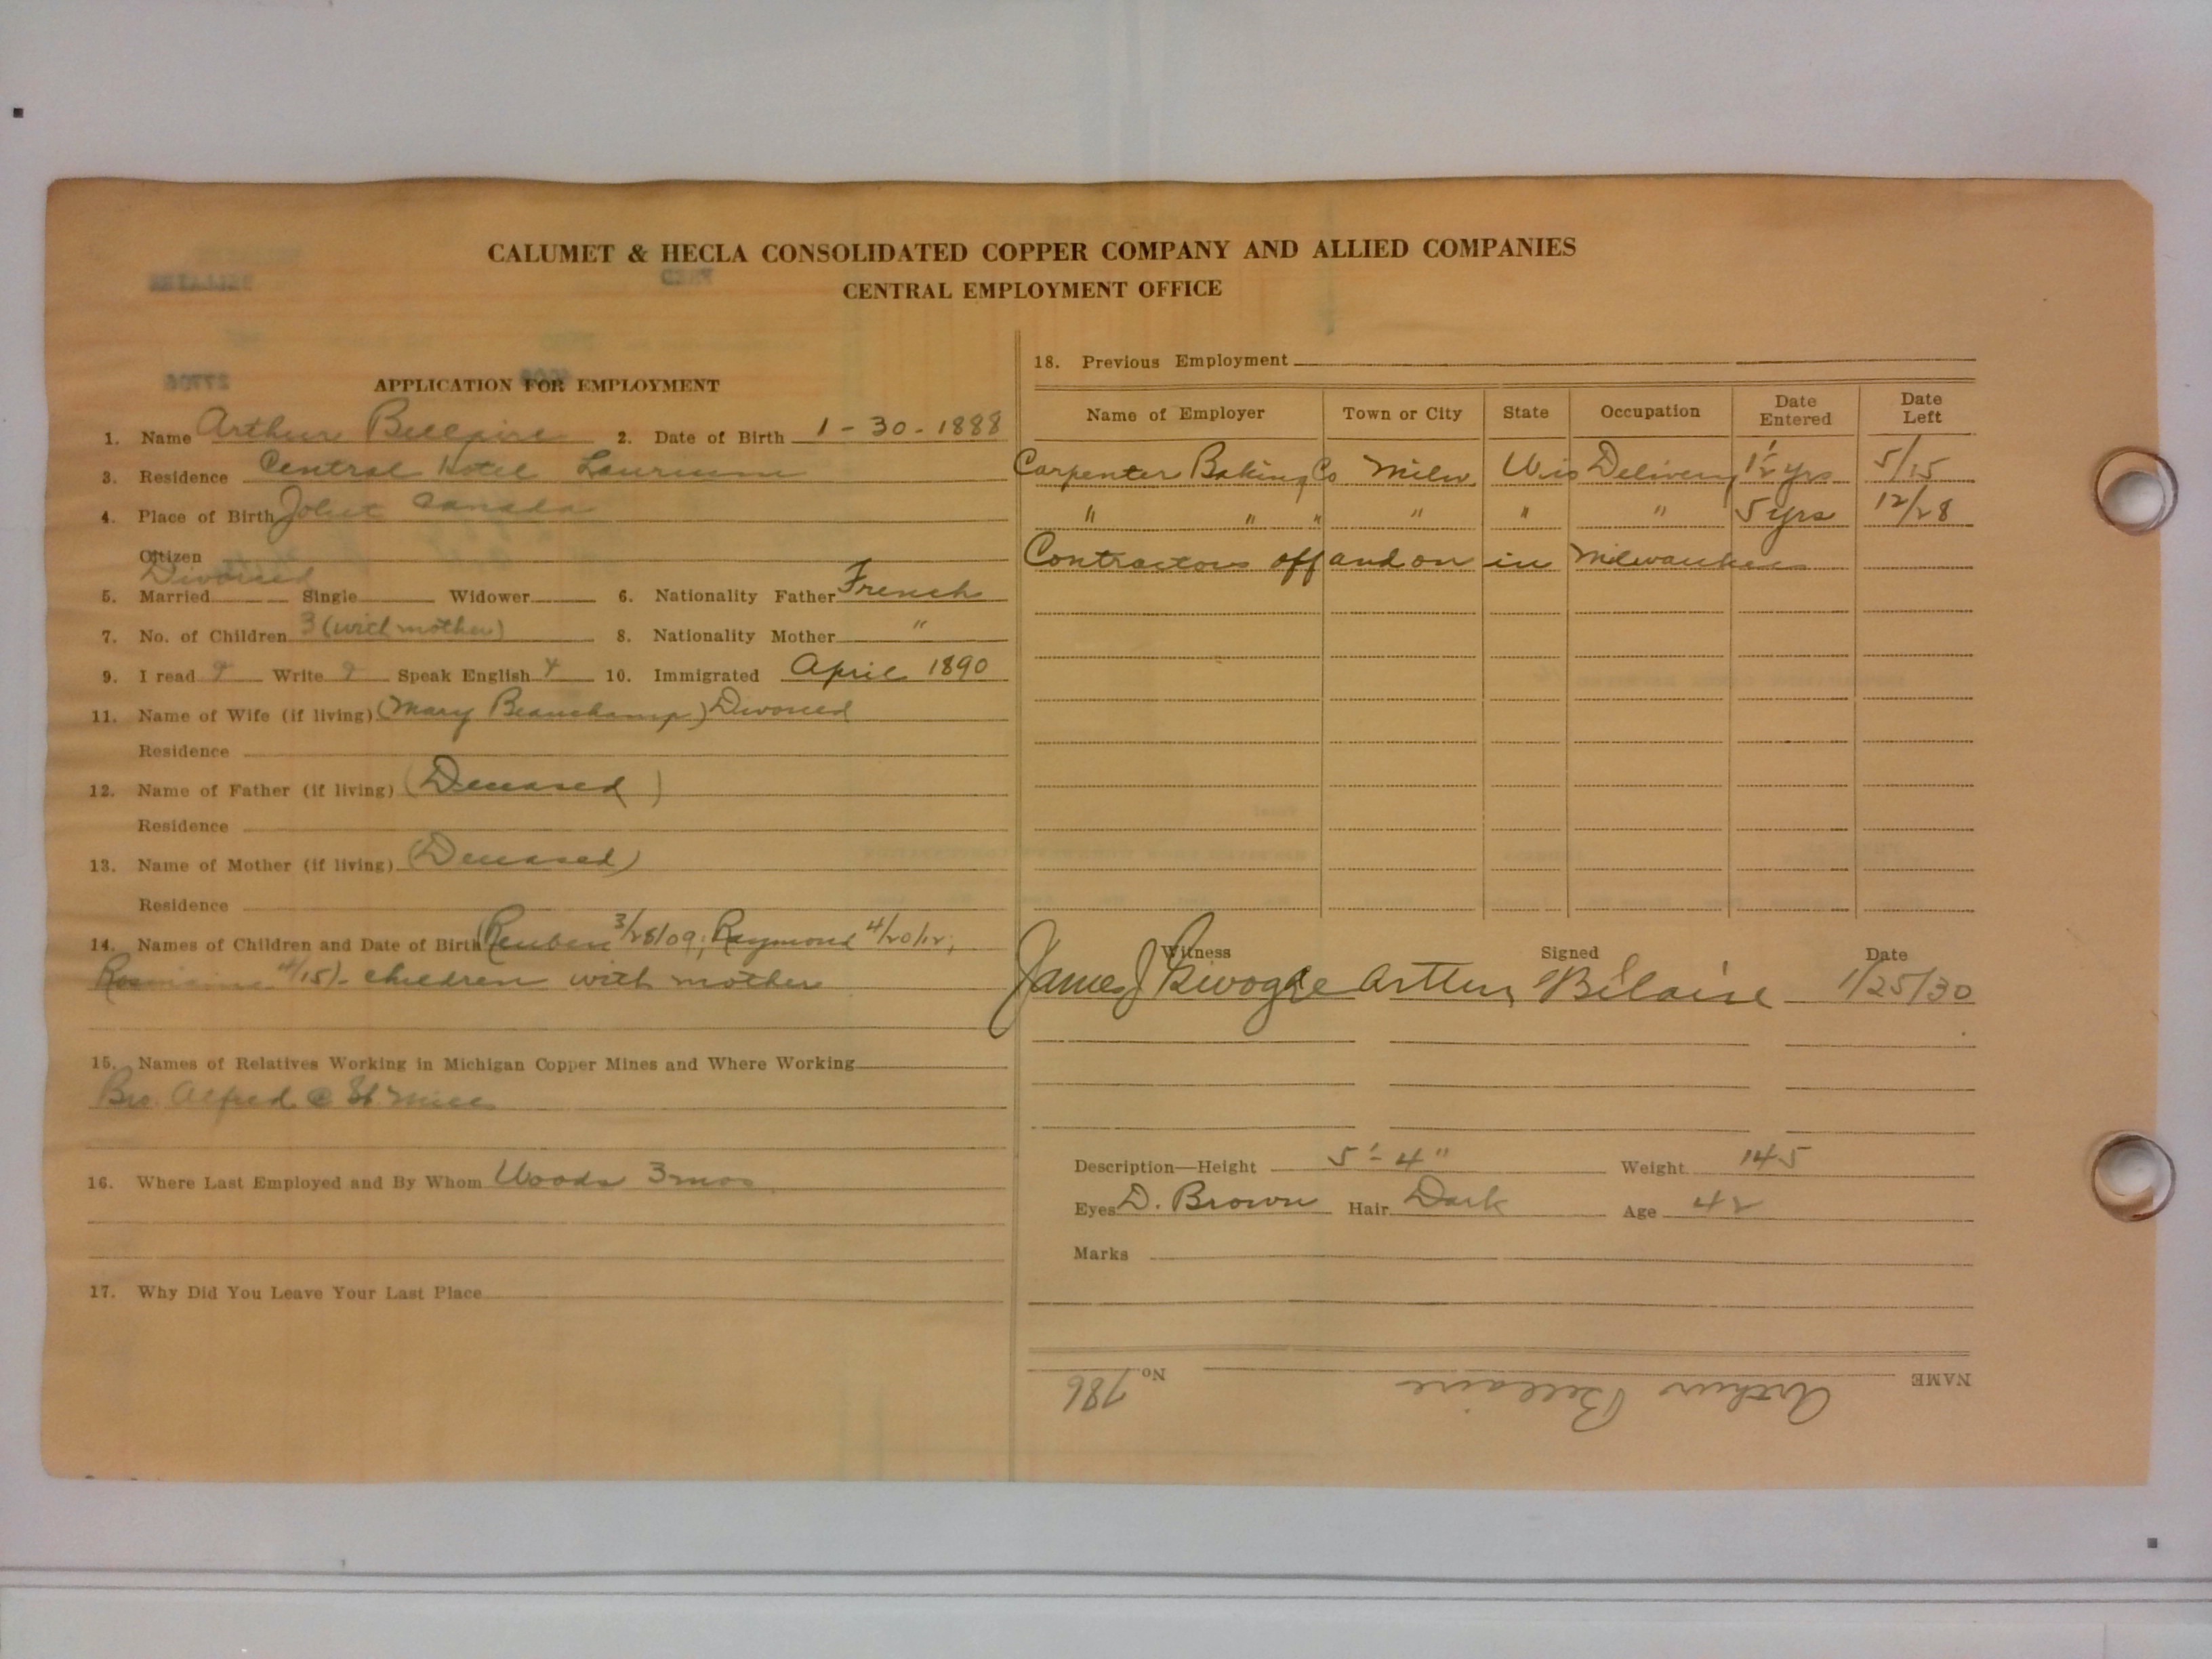 CALUMET & HECLA CONSOLIDATED COPPER COMPANY AND ALLIED COMPANIES
CENTRAL EMPLOYMENT OFFICE
APPLICATION FOR EMPLOYMENT
1. Name Arthur Bellaire 2. Date of Birth 1-30-1888
3. Residence Central Hotel Laurium
4. Place of Birth Joliet Canada
Citizen
Divorced
5. Married Single Widower 6. Nationality Father French
7. No. of Children 3 (with mother) 8. Nationality Mother "
9. I read Write Speak English 10. Immigrated April 1890
11. Name of Wife (if living) (Mary Beauchamp) Divorced
Residence
12. Name of Father (if living) (Deceased)
Residence
13. Name of Mother (if living) (Deceased)
Residence
14. Names of Children and Date of Birth (Reuben 3/28/09; Raymond 4/20/12;
4/15) - children with mother
15. Names of Relatives Working in Michigan Copper Mines and Where Working
Bro. Alfred @ St. Mill
16. Where Last Employed and By Whom Woods 3 mos
17. Why Did You Leave Your Last Place
18. Previous Employment
Name of Employer Town or City State Occupation Date Entered Date Left
Carpenter Baking Co Milw Wis Delivery 1½ yrs 5/15
" " " " " " 5 yrs 12/28
Contractors off and on in Milwaukee
Witness Signed Date
James J Arthur Bélaire 1/25/30
Description—Height 5'-4" Weight 145
Eyes D. Brown Hair Dark Age 42
Marks
NAME Arthur Bellaire No. 786